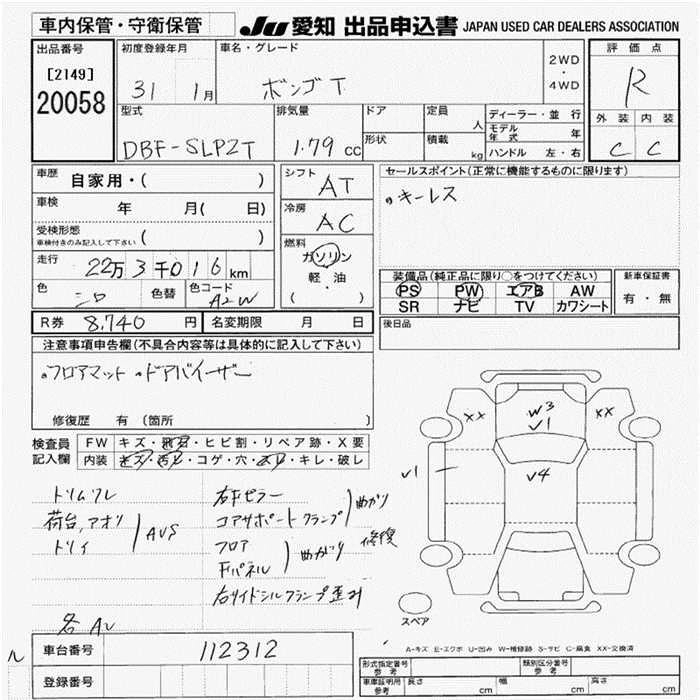 車内保管・守衛保管
JU 愛知 出品申込書 JAPAN USED CAR DEALERS ASSOCIATION
出品番号
[2149]
20058
初度登録年月
31 1月
車名・グレード
ボンゴ T
2WD
・
4WD
評価点
R
外装 内装
C C
型式
DBF-SLP2T
排気量
1.79 cc
ドア
形状
定員
人
積載
kg
ディーラー・並行
モデル年式 年
ハンドル 左・右
車歴 自家用・( )
車検 年 月( 日)
受検形態
車検付きのみ記入して下さい ( )
走行 22万3千016km
色 色替 色コード
A2W
シフト AT
冷房 AC
燃料
ガソリン
・
軽油
( )
セールスポイント(正常に機能するものに限ります)
キーレス
装備品(純正品に限り○をつけてください)
PS PW エアB AW
SR ナビ TV カワシート
新車保証書
有・無
R券 8,740円 名変期限 月 日
後日品
注意事項申告欄(不具合内容等は具体的に記入して下さい)
フロアマット ドアバイザー
修復歴 有(箇所 )
検査員
記入欄
FW キズ・飛石・ヒビ割・リペア跡・X要
内装 キズ・汚レ・コゲ・穴・スレ・キレ・破レ
トリムワレ
荷台,アオリ
トリイ
AUS
右Fピラー
コアサポートクランプ
曲がり
修復
フロア
Fパネル
曲がり
右サイドシルクランプ歪ミ
XX
XX
W3
V1
V1
V4
スペア
車台番号 112312
登録番号
A-キズ E-エクボ U-凹み W-補修跡 S-サビ C-腐食 XX-交換済
形式指定番号
参考
類別区分番号
参考
車庫証明用
参考
長さ cm 幅 cm 高さ cm